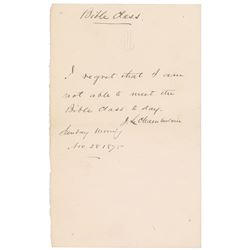 Bible Class.
I regret that I am
not able to meet the
Bible Class to day.
J L Chamberlain
Sunday Morning
Nov. 28 1875